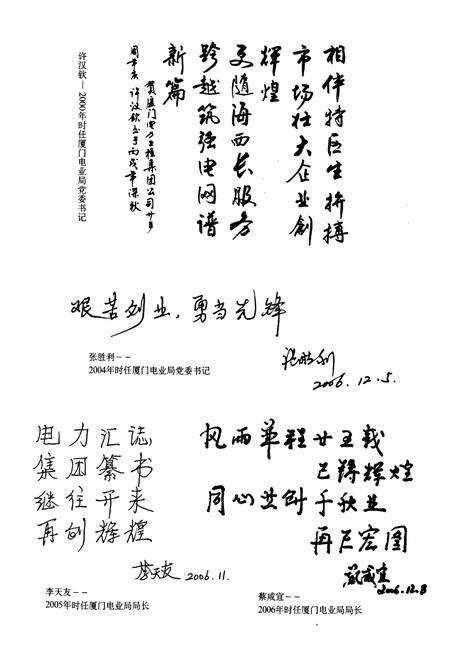 相伴特区生拼搏
市场壮大企业创
辉煌
随海西长服务
跨越筑强电网谱
新篇
贺厦门电力工程集团公司廿
周年庆 许汉钦书于丙戌年深秋
许汉钦——2000年时任厦门电业局党委书记
艰苦创业，勇当先锋
张胜利
2006.12.5.
张胜利——
2004年时任厦门电业局党委书记
电力汇志
集团纂书
继往开来
再创辉煌
李天友 2006.11.
李天友——
2005年时任厦门电业局局长
风雨兼程廿五载
已铸辉煌
同心共创千秋业
再展宏图
蔡咸宜
2006.12.8
蔡咸宜——
2006年时任厦门电业局局长